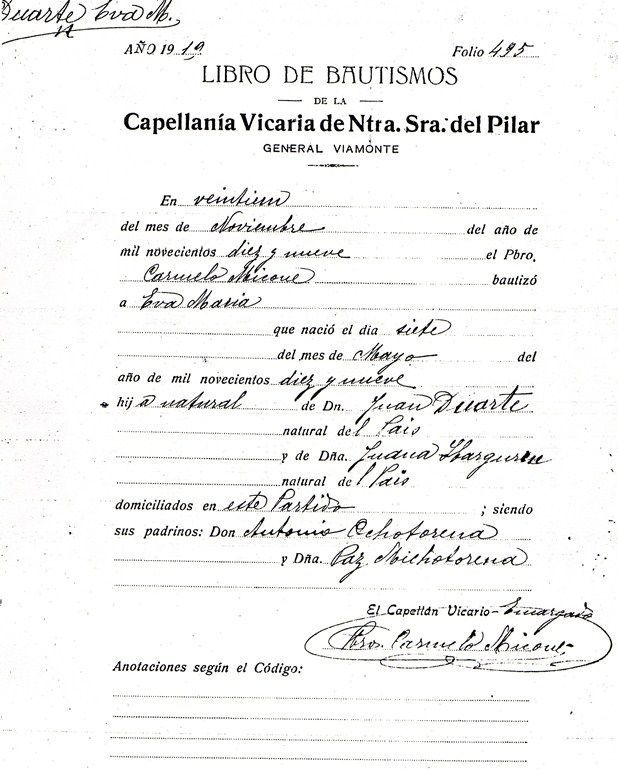 Duarte Eva M.
AÑO 1919 Folio 495
LIBRO DE BAUTISMOS
DE LA
Capellanía Vicaria de Ntra. Sra. del Pilar
GENERAL VIAMONTE
En veintiun
del mes de Noviembre del año de
mil novecientos diez y nueve el Pbro.
Carmelo Micone bautizó
a Eva Maria
que nació el dia siete
del mes de Mayo del
año de mil novecientos diez y nueve
hija natural de Dn. Juan Duarte
natural del Pais
y de Dña. Juana Ibarguren
natural del Pais
domiciliados en este Partido ; siendo
sus padrinos: Don Antonio Ochotorena
y Dña. Paz Michotorena
El Capellán Vicario-Encargado
Pbro. Carmelo Micone
Anotaciones según el Código: